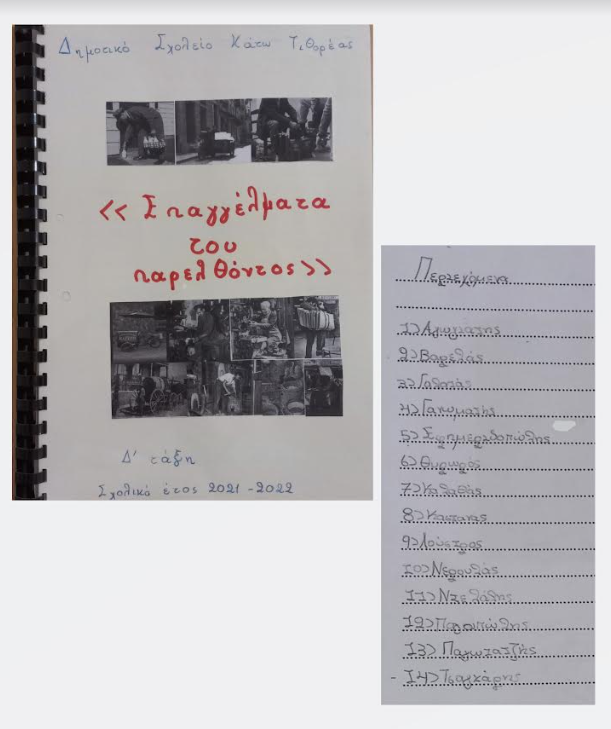 Δημοτικό Σχολείο Κάτω Τιθορέας
<< Επαγγέλματα
του
παρελθόντος>>
Δ' τάξη
Σχολικό έτος 2021-2022
Περιεχόμενα
1) Αγωγιάτης
2) Βαρελάς
3) Γαλατάς
4) Γανωματής
5) Εφημεριδοπώλης
6) Θυρωρός
7) Καλαθάς
8)
9) Λούστρος
10) Νερουλάς
11) Ντελάλης
12) Παγοπώλης
13) Παγωτατζής
14) Τσαγκάρης